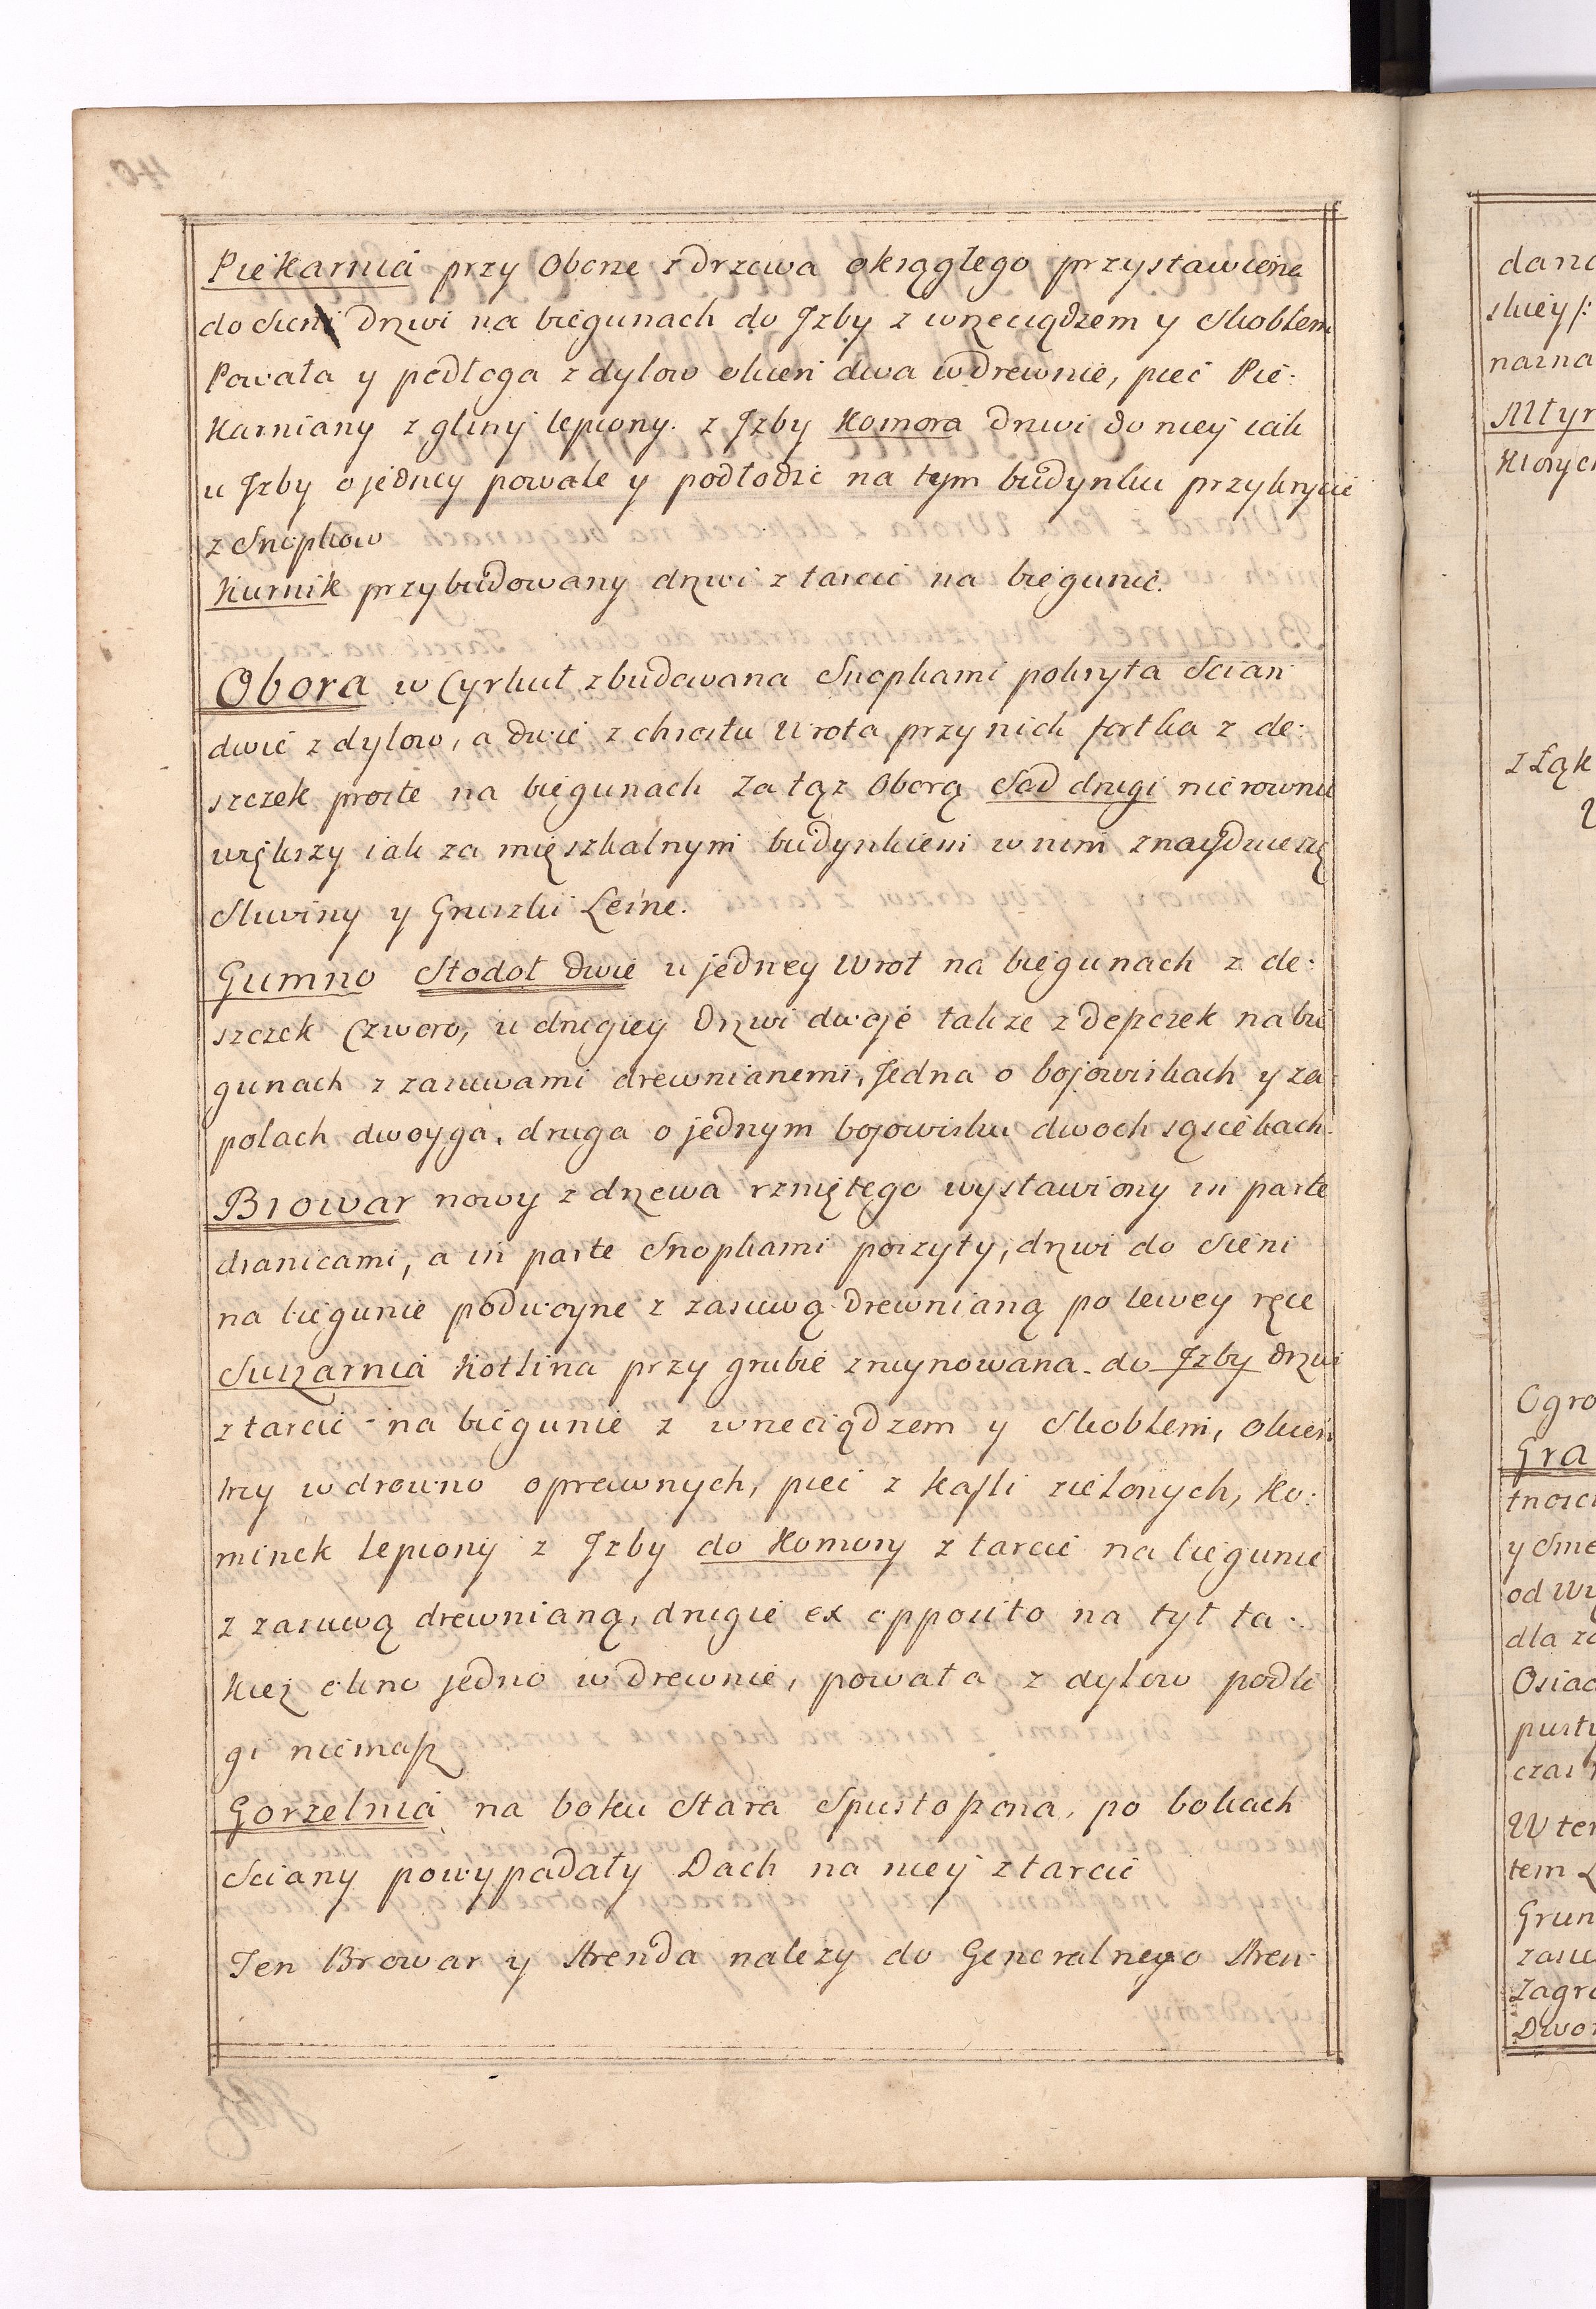 Piekarnia przy Oborze z drzewa okrągłego przystawiona
do Sieni drzwi na biegunach do Jzby z wrzeciądzem y Skoblem
Powała y podłoga z dylow okien dwa w drewnie, piec Pie:
karniany z gliny lepiony. z Jzby Komora drzwi do niey iak
u Jzby o jedney powale y podłodze na tym budynku przykrycie
z Snopkow
Kurnik przybudowany drzwi z tarcic na biegunie.
Obora w Cyrkuł zbudowana Snopkami pokryta Scian
dwie z dylow, a dwie z chrostu Wrota przy nich fortka z de:
szczek proste na biegunach Za tąż Oborą Sad drugi nierownie
większy iak za mięszkalnym budynkiem w nim znayduie się
Sliwiny y Gruszki Leśne.
Gumno Stodoł dwie u jedney Wrot na biegunach z de:
szczek Czworo, u drugiey drzwi dwoje takze z deszczek na bie
gunach z zasuwami drewnianemi, Jedna o bojowiskach y za
polach dwoyga, druga o jednym bojowisku dwoch sąsiekach.
Browar nowy z drzewa rzniętego wystawiony in parte
dranicami, a in parte Snopkami poszyty, drzwi do Sieni
na biegunie podwoyne z zasuwą drewnianą po lewey ręce
Suszarnia Kotlina przy grubie zruynowana. do Jzby drzwi
z tarcic na biegunie z wrzeciądzem y Skoblem, okien
trzy w drewno oprawnych, piec z kafli zielonych, Ko:
minek lepiony z Jzby do Komory z tarcic na biegunie
z zasuwą drewnianą, drugie ex opposito na tył ta:
kież okno jedno w drewnie, powała z dylow podło
gi niemasz
Gorzelnia na boku Stara Spustoszona, po bokach
Sciany powypadały Dach na niey z tarcic
Ten Browar y Arenda nalezy do Generalnego Aren:
dana
skiey /:
Młyn
z Łąk
Ogro
Gra
tnosci
dla za
Osiad
pusty
czas
W ter
tem
Grun
zasie
Zagro
Dwor